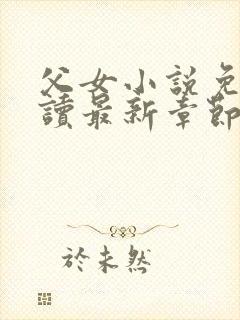 父女小說免
讀最新章節
於未然